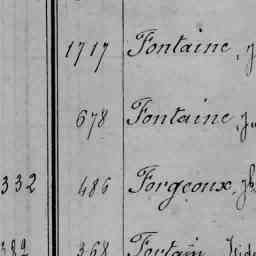 1717 Fontaine, J
678 Fontaine, J
332 486 Forgeoux, Jh
382 368 Fortain